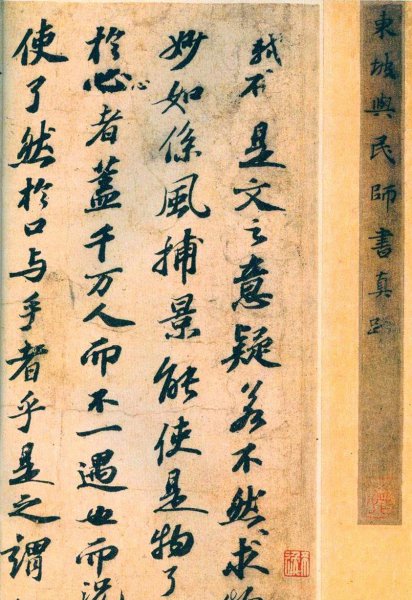 東坡與民師書真
軾不是文之意疑若不然求
妙如係風捕景能使是物了
扵心者蓋千万人而不一遇也而況
心
使了然扵口与手者乎是之謂